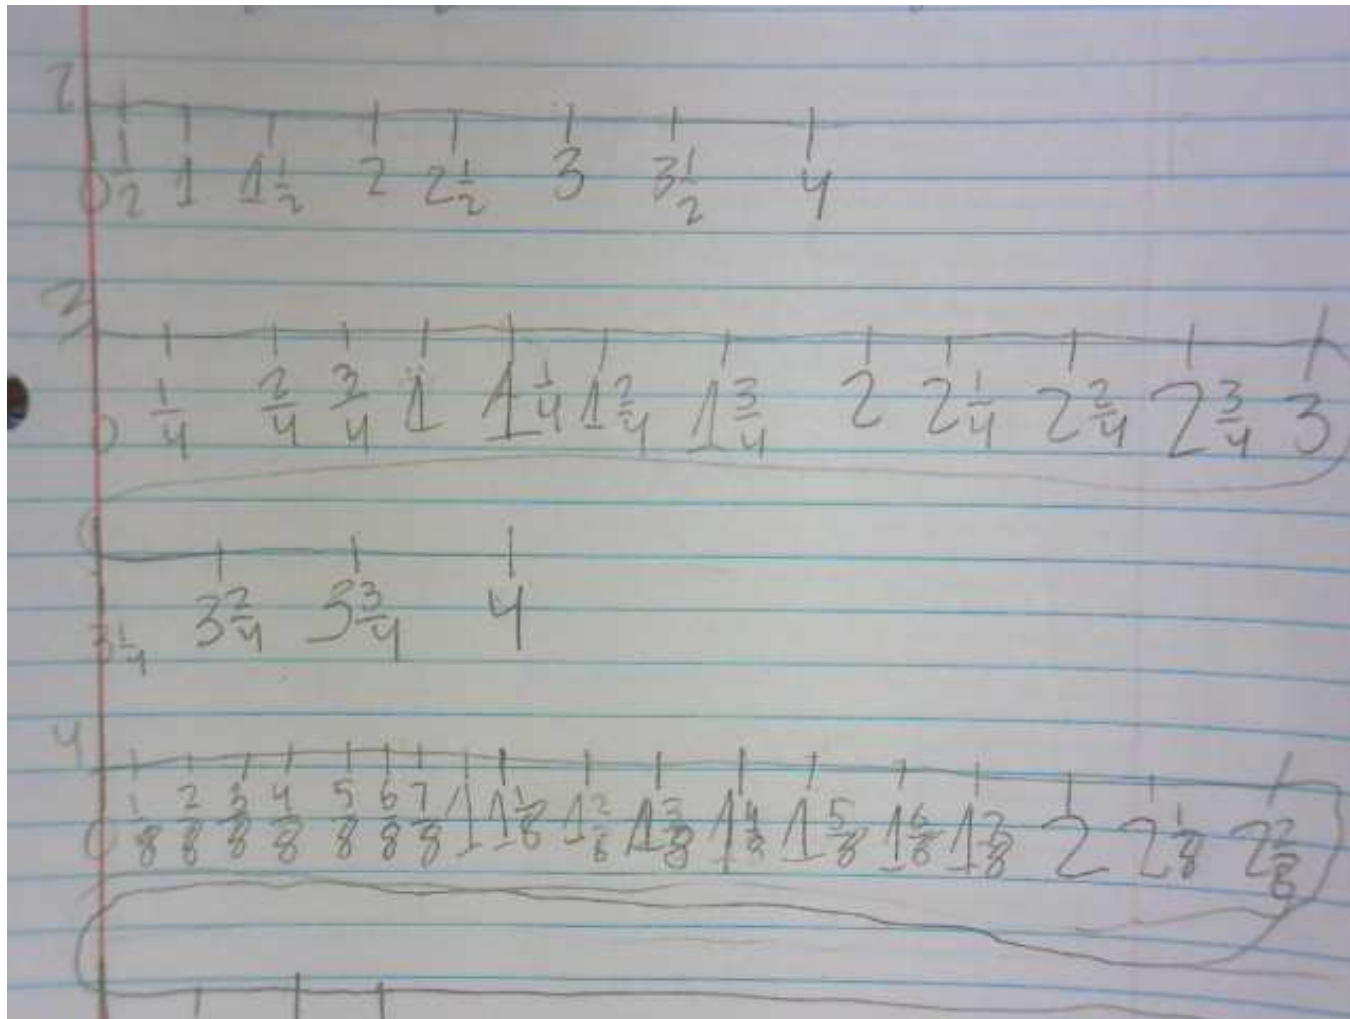 2
0 1/2 1 1 1/2 2 2 1/2 3 3 1/2 4
3
0 1/4 2/4 3/4 1 1 1/4 1 2/4 1 3/4 2 2 1/4 2 2/4 2 3/4 3
3 1/4 3 2/4 3 3/4 4
4
0 1/8 2/8 3/8 4/8 5/8 6/8 7/8 1 1 1/8 1 2/8 1 3/8 1 4/8 1 5/8 1 6/8 1 7/8 2 2 1/8 2 2/8